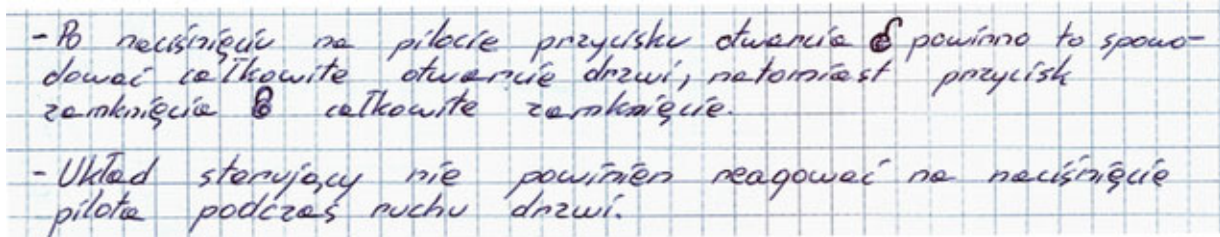 - Po naciśnięciu na pilocie przycisku otwarcia 🔓 powinno to spowo-
dować całkowite otwarcie drzwi, natomiast przycisk
zamknięcia 🔒 całkowite zamknięcie.
- Układ sterujący nie powinien reagować na naciśnięcie
pilota podczas ruchu drzwi.